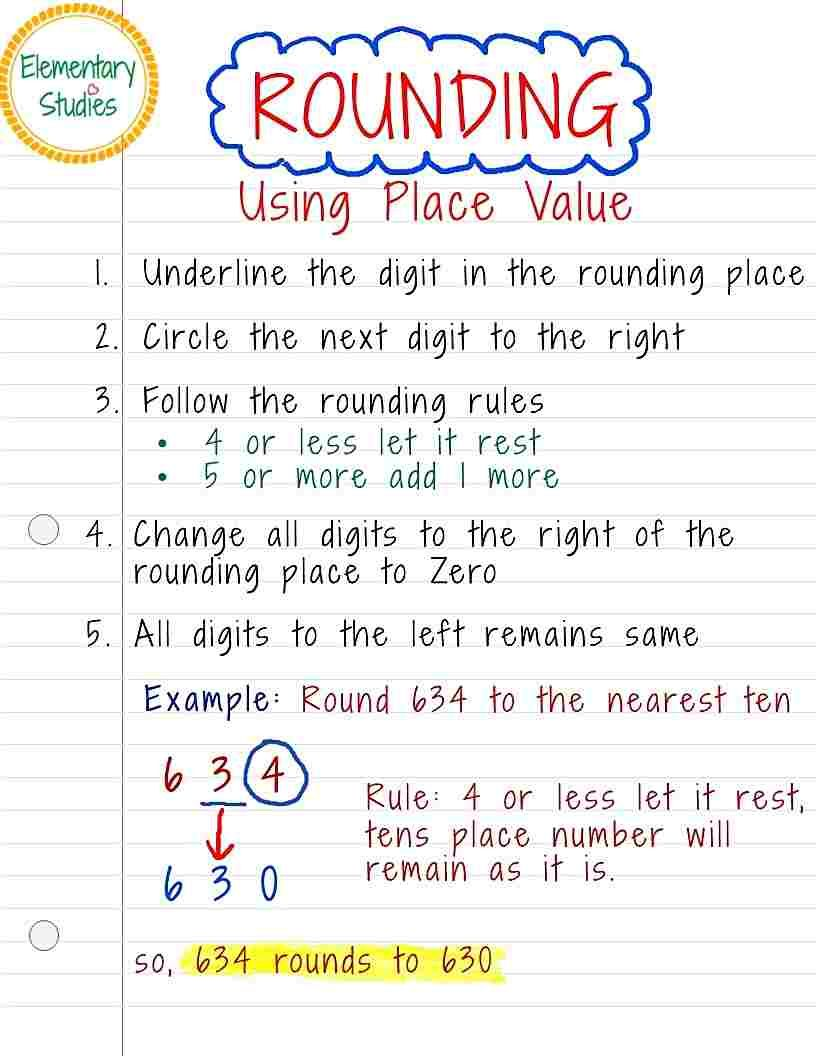 Elementary
Studies
ROUNDING
Using Place Value
1. Underline the digit in the rounding place
2. Circle the next digit to the right
3. Follow the rounding rules
• 4 or less let it rest
• 5 or more add 1 more
4. Change all digits to the right of the
rounding place to Zero
5. All digits to the left remains same
Example: Round 634 to the nearest ten
6 3 4
Rule: 4 or less let it rest,
tens place number will
remain as it is.
6 3 0
so, 634 rounds to 630